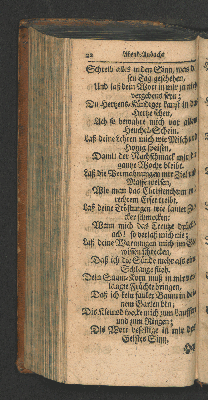 22 Abend-Andacht
Schreib alles in den Sinn, was die-
sen Tag geschehen,
Und laß dein Wort in mir ja nicht
vergebens seyn;
Du Hertzens-Kündiger kanst in das
Hertze sehen,
Ach so bewahre mich vor allem
Heuchel-Schein.
Laß deine Lehren mich wie Milch und
Honig speisen,
Damit der Nachschmack mir die
gantze Woche bleibt.
Laß die Vermahnungen mir Ziel und
Masse weisen,
Wie man das Christenthum in
rechtem Eifer treibt.
Laß deine Tröstungen wie lauter Zu-
cker schmecken:
Wann mich das Creutze drückt
ach! so verlaß mich nie;
Laß deine Warnungen mich im Ge-
wissen schrecken,
Daß ich die Sünde mehr als eine
Schlange flieh.
Dein Saam-Korn muß in mir ver-
langte Früchte bringen,
Daß ich kein fauler Baum in dei-
nem Garten bin;
Dis Kleinod wecke mich zum Lauffen
und zum Ringen;
Dis Wort befestige in mir des
Geistes Sinn.